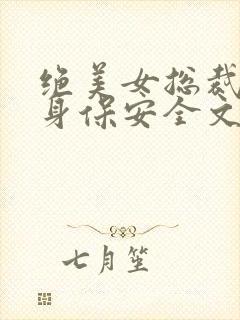 绝美女总裁
身保安全文
七月笙